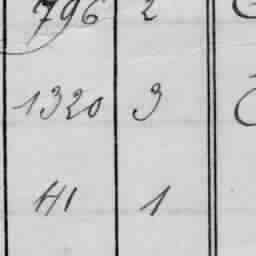 796 2
1320 3
41 1